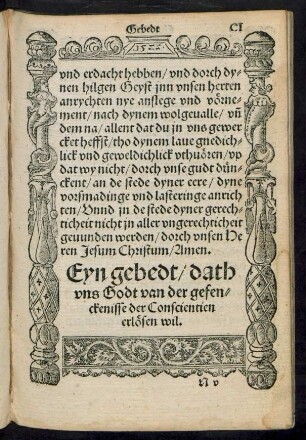 Gebedt CI
1522
vnd erdacht hebben/ vnd dorch dy-
nen hilgen Geyst jnn vnsen herten
anrychten nye anslege vnd vörne-
ment/ nach dynem wolgeualle/ vñ
dem na/ allent dat du jn vns gewer
cket heffst/ tho dynem laue gnedich-
lick vnd geweldichlick vthuören/ vp
dat wy nicht/ dorch vnse gudt dün-
ckent/ an de stede dyner eere/ dyne
vorsmadinge vnd lasteringe anrich
ten/ Vnnd jn de stede dyner gerech-
ticheit nicht jn aller vngerechticheit
geuunden werden/ dorch vnsen He
ren Jesum Christum/ Amen.
Eyn gebedt/ dath
vns Godt van der gefen-
ckenisse der Conscientien
erlösen wil.
N v